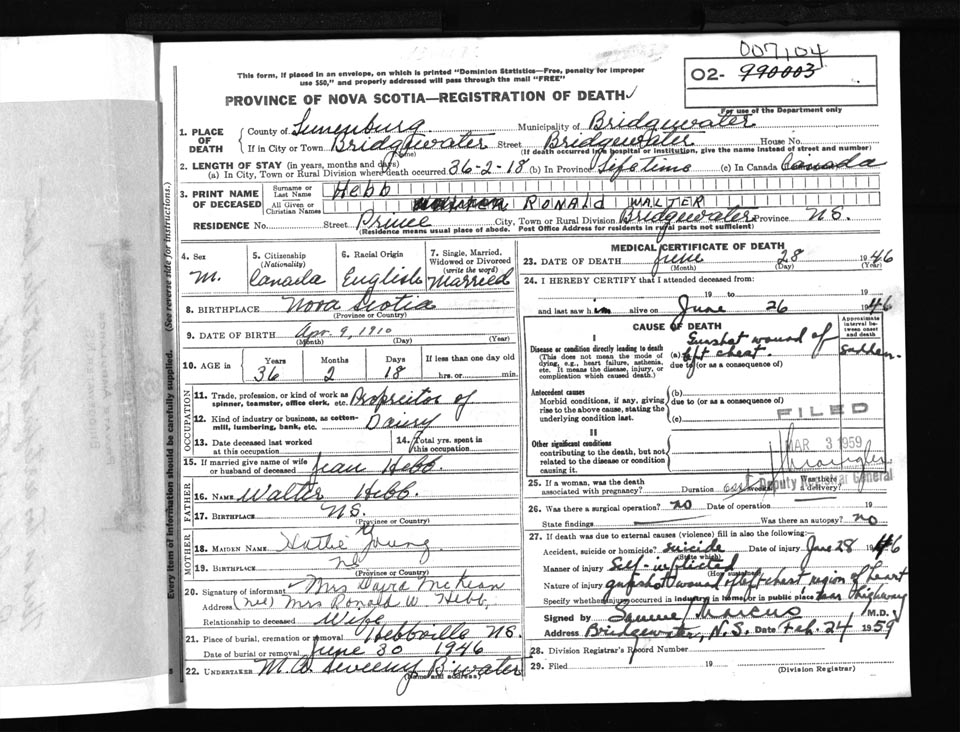 007104
02- 990003
For use of the Department only
This form, if placed in an envelope, on which is printed "Dominion Statistics—Free, penalty for improper
use $50," and properly addressed will pass through the mail "FREE"
PROVINCE OF NOVA SCOTIA—REGISTRATION OF DEATH
1. PLACE OF DEATH
County of Lunenburg Municipality of Bridgewater
If in City or Town Bridgewater Street Bridgewater House No.
(Name) (If death occurred in a hospital or institution, give the name instead of street and number)
2. LENGTH OF STAY (in years, months and days)
(a) In City, Town or Rural Division where death occurred 36-2-18 (b) In Province Lifetime (c) In Canada Canada
3. PRINT NAME OF DECEASED
Surname or Last Name Hebb
All Given or Christian Names RONALD WALTER
RESIDENCE No. Street Prince City, Town or Rural Division Bridgewater Province N.S.
(Residence means usual place of abode. Post Office Address for residents in rural parts not sufficient)
4. Sex M.
5. Citizenship (Nationality) Canada
6. Racial Origin English
7. Single, Married, Widowed or Divorced (write the word) Married
8. BIRTHPLACE Nova Scotia
(Province or Country)
9. DATE OF BIRTH Apr. 9, 1910
(Month) (Day) (Year)
10. AGE in Years 36 Months 2 Days 18 If less than one day old hrs. or min.
OCCUPATION
11. Trade, profession, or kind of work as spinner, teamster, office clerk, etc. Proprietor of
12. Kind of industry or business, as cotton-mill, lumbering, bank, etc. Dairy
13. Date deceased last worked at this occupation
14. Total yrs. spent in this occupation
15. If married give name of wife or husband of deceased Jean Hebb
FATHER
16. NAME Walter Hebb.
17. BIRTHPLACE N.S.
(Province or Country)
MOTHER
18. MAIDEN NAME Hattie Young
19. BIRTHPLACE NS
(Province or Country)
20. Signature of informant Mrs David McKean
Address (nee) Mrs Ronald W. Hebb,
Relationship to deceased Wife
21. Place of burial, cremation or removal Hebbville N.S.
Date of burial or removal June 30 1946
22. UNDERTAKER M. B. Sweeny B'water
(Name and address)
Every item of information should be carefully supplied. (See reverse side for instructions.)
MEDICAL CERTIFICATE OF DEATH
23. DATE OF DEATH June 28 1946
(Month) (Day) (Year)
24. I HEREBY CERTIFY that I attended deceased from:
19 to 19
and last saw him alive on June 26 1946
CAUSE OF DEATH
Approximate interval between onset and death
I
Disease or condition directly leading to death (a) Gunshot wound of left chest. sudden.
(This does not mean the mode of dying, e.g., heart failure, asthenia, etc. It means the disease, injury, or complication which caused death.)
due to (or as a consequence of)
Antecedent causes
Morbid conditions, if any, giving rise to the above cause, stating the underlying condition last.
(b)
due to (or as a consequence of)
(c)
II
Other significant conditions
contributing to the death, but not related to the disease or condition causing it.
FILED
MAR 3 1959
Deputy Registrar General
25. If a woman, was the death associated with pregnancy? Duration weeks Was there a delivery?
26. Was there a surgical operation? no Date of operation 19
State findings Was there an autopsy? no
27. If death was due to external causes (violence) fill in also the following:—
Accident, suicide or homicide? suicide Date of injury June 28 1946
(State which)
Manner of injury Self-inflicted
(How sustained)
Nature of injury gunshot wound of left chest region of heart
Specify whether injury occurred in industry in home or in public place near highway
Signed by Samuel Marcus M.D.
Address Bridgewater, N.S. Date Feb. 24 1959
28. Division Registrar's Record Number
29. Filed 19
(Division Registrar)